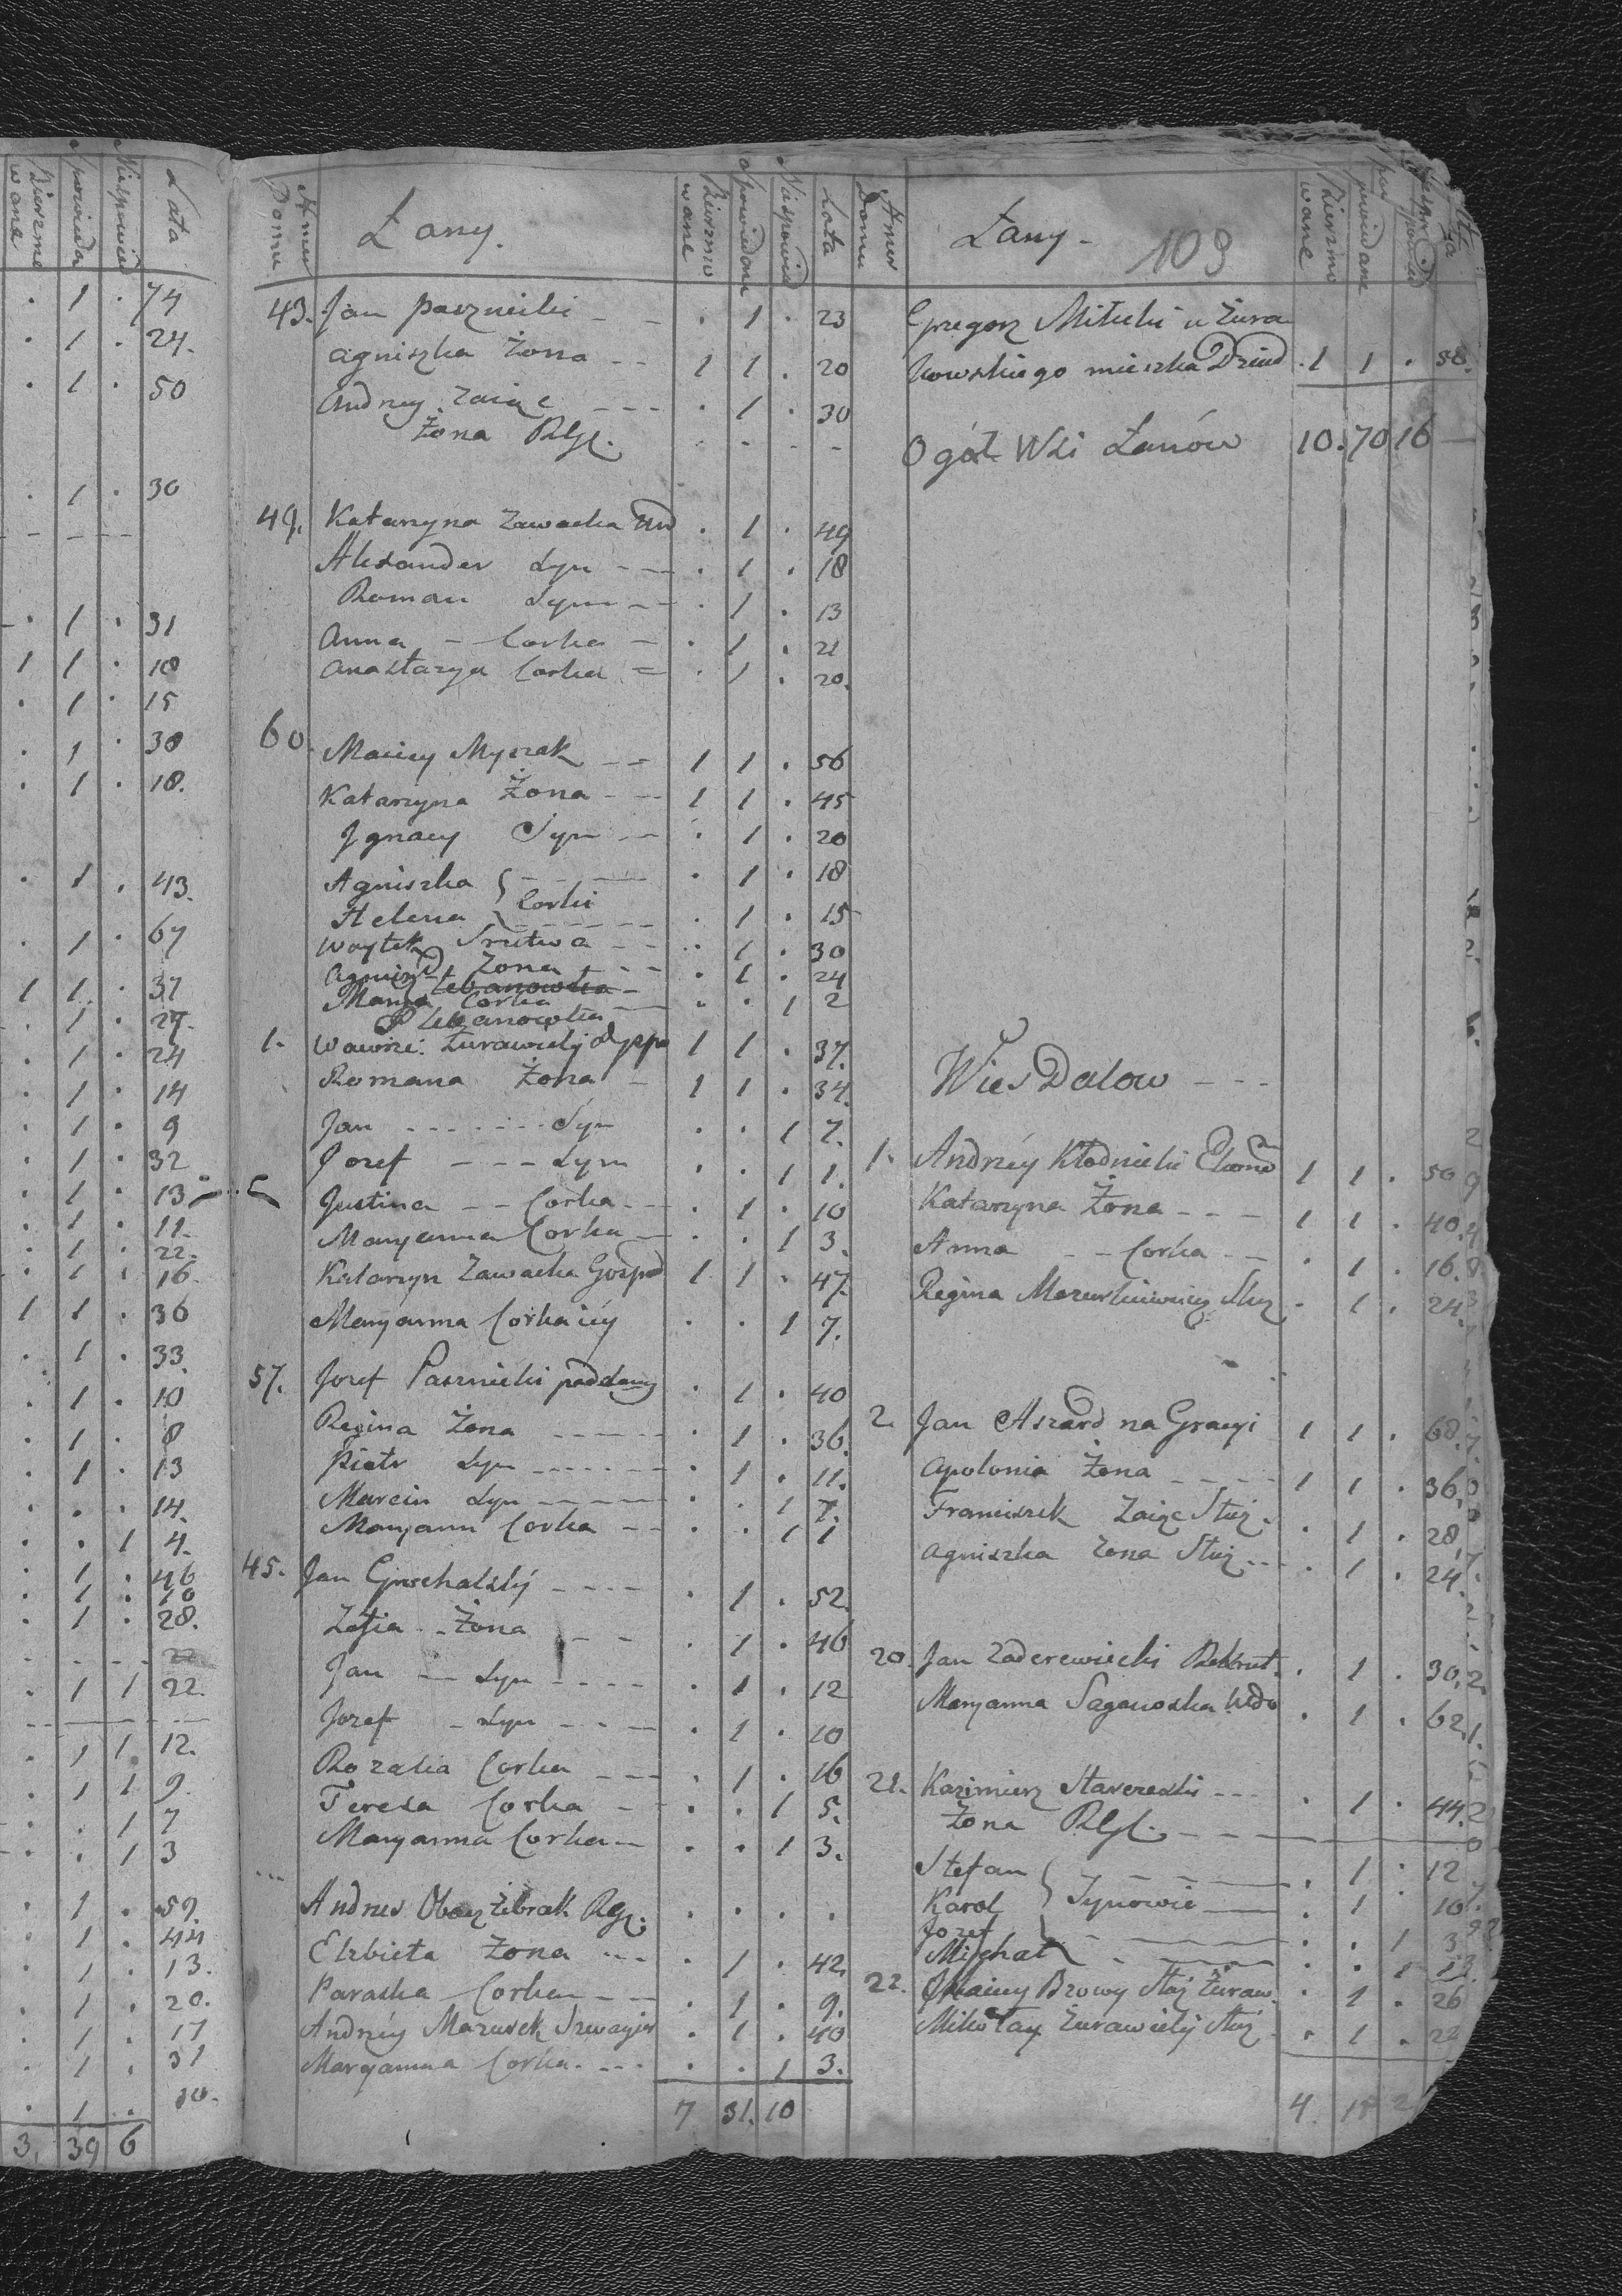 Lata
Bierzmo
wane
. 1 . 74
. 1 . 24.
. 1 . 50
. 1 . 30
. 1 . 31
1 1 . 18
. 1 . 15
. 1 . 38
. 1 . 18.
. 1 . 43.
. 1 . 67
1 1 . 37
. 1 . 27.
. 1 . 24
. 1 . 14
. 1 . 9
. 1 . 32
. 1 . 13
. 1 . 11.
. 1 . 22.
. 1 . 16.
1 1 . 36
. 1 . 33.
. 1 . 10
. 1 . 8
. 1 . 13
. . . 14.
. . 1 4.
. 1 . 46
. 1 . 10
. 1 . 28.
. 1 1 22.
. 1 1 12.
. 1 1 9.
. . 1 7
. . 1 3
. 1 . 59.
. 1 . 44
. 1 . 13.
. 1 . 20.
. 1 . 17
. 1 . 31
. 1 . 10.
3. 39 6
Numer
Domu
Łany.
Bierzmo
wane
Spowiedane
Niespowied
Lata
43. Jan Pasznicki - - . 1 . 23
Agniszka Żona - - 1 1 . 20
Andrzey Zaiąc - - - . 1 . 30
Żona RGł. . - - -
49. Katarzyna Zawacka . 1 . 49
Alexander Syn - - . 1 . 18
Roman Syn - - . 1 . 13
Anna - Corka - . 1 . 21
Anastazya Corka = . 1 . 20.
60. Maciey Myszak - - 1 1 . 56
Katarzyna Żona - - 1 1 . 45
Ignacy Syn - - . 1 . 20
Agniszka } - - - . 1 . 18
Helena } Corki - - . 1 . 15
Woytek - - . 1 . 30
Żona - - . 1 . 24
Corka . . 1 2
1. Wawrze: Żurawicky 1 1 . 37.
Romana Żona - 1 1 . 34.
Jan - - - - Syn . . 1 7.
Jozef - - - Syn . . 1 1.
Justina - - Corka - - . 1 . 10
Maryanna Corka - . . 1 3.
Katarzyn Zawacka Gosposd 1 1 . 47.
Maryanna Corka iey . . 1 7.
57. Jozef Pasznicki poddany . 1 . 40
Regina Żona - - - . 1 . 36.
Piotr Syn - - - . 1 . 11.
Marcin Syn - - - . . 1 7.
Maryann Corka - - . . 1 1
45. Jan Grochalsky - - - . 1 . 52.
Zofia - - Żona - - . 1 . 46
Jan - - Syn - - - . 1 . 12
Jozef - Syn - - - . 1 . 10
Rozalia Corka - - - . 1 . 16
Teresa Corka - . . 1 5.
Maryanna Corka - . . 1 3.
Żebrak . . . .
Elzbieta Żona - - - . 1 . 42.
Paraska Corka - - . 1 . 9.
Andrzey Mazurek Szwagier . 1 . 40
Maryanna Corka - - - . . 1 3.
7 31. 10
Numer
Domu
Łany - 109
Bierzmo
wane
Grzegorz Milicki u Żura
kowskiego mieszka Dziad . 1 1 . 58.
Ogół Wsi Łanów 10. 70 16 -
Wies Dalow - - -
1. Andrzéy Kłodnicki 1 1 . 50
Katarzyna Żona - - - 1 1 . 40.
Anna - - Corka - - . 1 . 16.
Regina Mazurkiewicz Słuz . 1 . 24.
2. Jan Aszard na Gracyi 1 1 . 68.
Apolonia Żona - - - 1 1 . 36.
Franciszek Zaiąc Służ. . 1 . 28.
Agniszka Żona Służ. - - . 1 . 24.
20. Jan Zaderewiecki Rekrut. . 1 . 30.
Maryanna Saganoska Wdo . 1 . 62.
21. Kazimierz Stawereski - - - . 1 . 44.
Żona RGł. - - -
Stefan } . 1 . 12
Karol } Synowie . 1 . 10
Jozef } . . 1 3
Michał . . 1
22. Maciey Brzowy Służ Żuraw. . 1 . 26
Mikołay Żurawicky Słuz . 1 . 22
4.